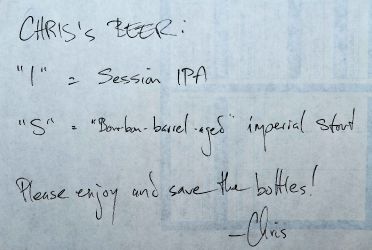 CHRIS's BEER:
"I" = Session IPA
"S" = "Bourbon-barrel-aged" imperial stout
Please enjoy and save the bottles!
-Chris